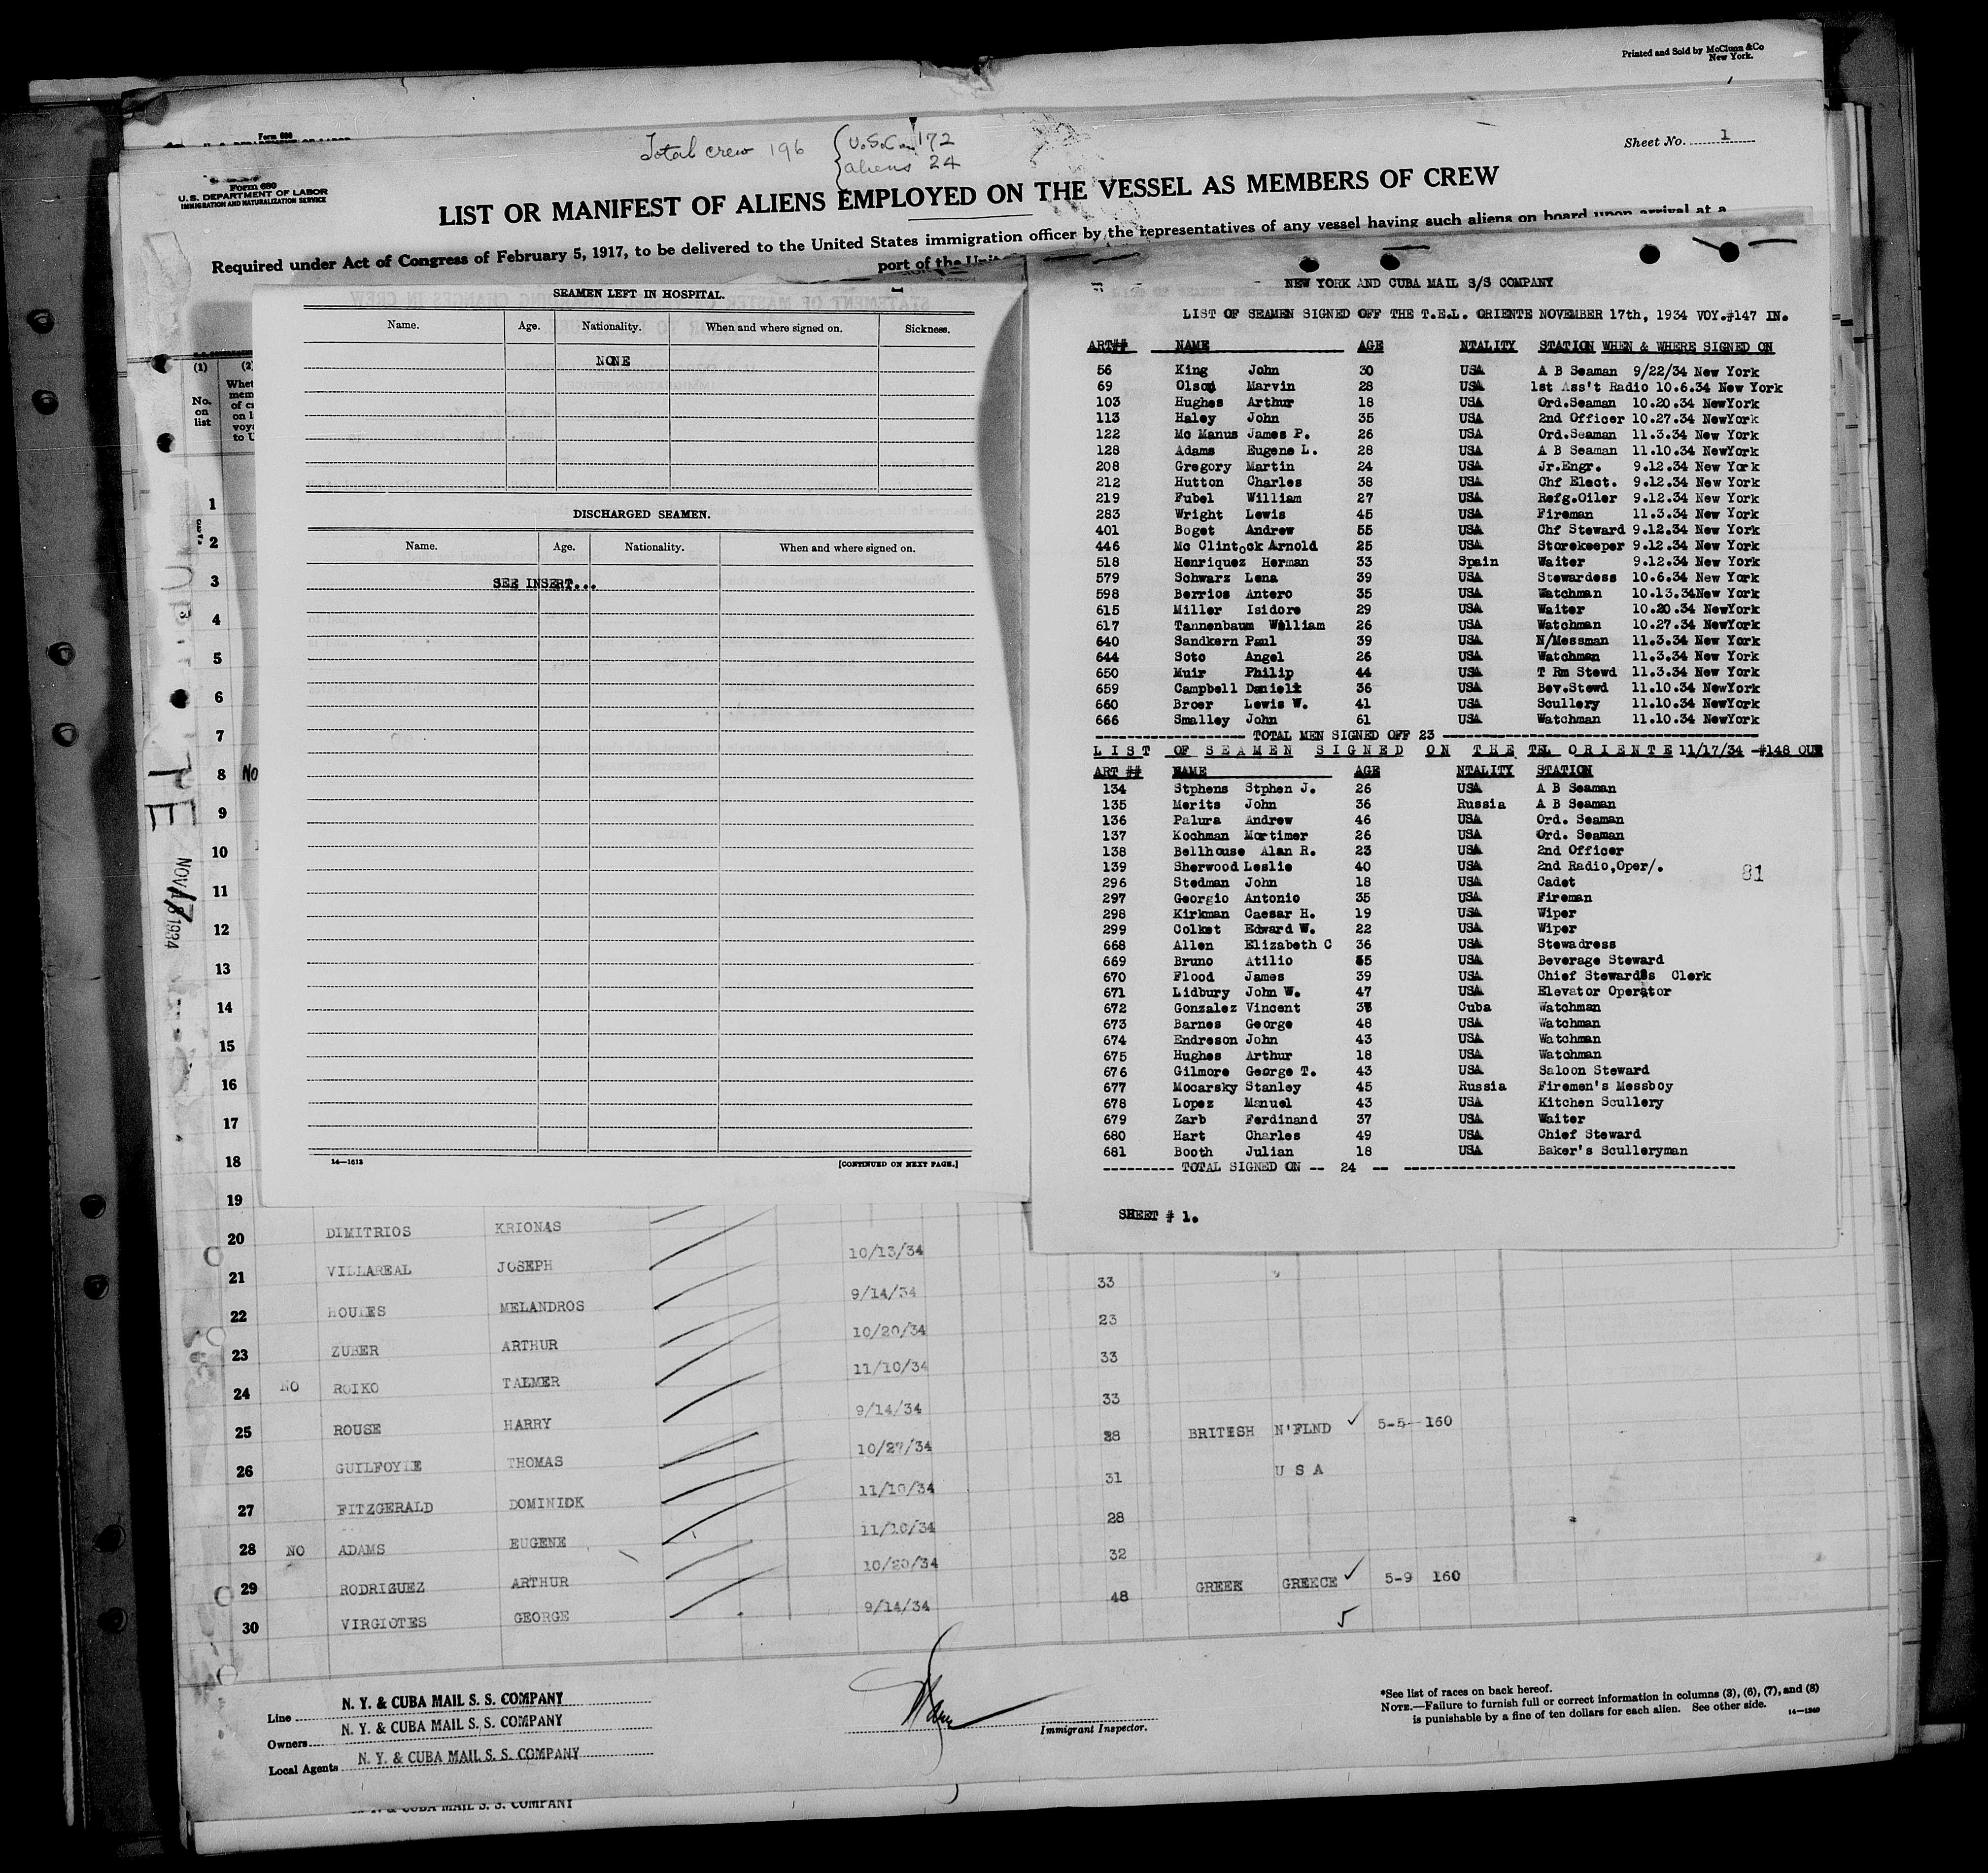 Printed and Sold by McClunn & Co
New York.
Form 680
Total crew 196 { U.S.C. 172
aliens 24
Sheet No. 1
Form 680
U.S. DEPARTMENT OF LABOR
IMMIGRATION AND NATURALIZATION SERVICE
LIST OR MANIFEST OF ALIENS EMPLOYED ON THE VESSEL AS MEMBERS OF CREW
Required under Act of Congress of February 5, 1917, to be delivered to the United States immigration officer by the representatives of any vessel having such aliens on board upon arrival at a
port of the
(1)
No.
on
list
SEAMEN LEFT IN HOSPITAL.
Name. Age. Nationality. When and where signed on. Sickness.
NONE
DISCHARGED SEAMEN.
Name. Age. Nationality. When and where signed on.
SEE INSERT...
14—1613 [CONTINUED ON NEXT PAGE.]
NEW YORK AND CUBA MAIL S/S COMPANY
LIST OF SEAMEN SIGNED OFF THE T.E.L. ORIENTE NOVEMBER 17th, 1934 VOY.#147 IN.
ART## NAME AGE NTALITY STATION WHEN & WHERE SIGNED ON
56 King John 30 USA A B Seaman 9/22/34 New York
69 Olson Marvin 28 USA 1st Ass't Radio 10.6.34 New York
103 Hughes Arthur 18 USA Ord.Seaman 10.20.34 NewYork
113 Haley John 35 USA 2nd Officer 10.27.34 NewYork
122 Mc Manus James P. 26 USA Ord.Seaman 11.3.34 New York
128 Adams Eugene L. 28 USA A B Seaman 11.10.34 NewYork
208 Gregory Martin 24 USA Jr.Engr. 9.12.34 New York
212 Hutton Charles 38 USA Chf Elect. 9.12.34 New York
219 Fubel William 27 USA Refg.Oiler 9.12.34 New York
283 Wright Lewis 45 USA Fireman 11.3.34 New York
401 Boget Andrew 55 USA Chf Steward 9.12.34 New York
446 Mc Clintock Arnold 25 USA Storekeeper 9.12.34 New York
518 Henriquez Herman 33 Spain Waiter 9.12.34 New York
579 Schwarz Lena 39 USA Stewardess 10.6.34 New York
598 Berrios Antero 35 USA Watchman 10.13.34New York
615 Miller Isidore 29 USA Waiter 10.20.34 NewYork
617 Tannenbaum William 26 USA Watchman 10.27.34 NewYork
640 Sandkern Paul 39 USA N/Messman 11.3.34 New York
644 Soto Angel 26 USA Watchman 11.3.34 New York
650 Muir Philip 44 USA T Rm Stewd 11.3.34 New York
659 Campbell Daniel 36 USA Bev.Stewd 11.10.34 NewYork
660 Broer Lewis W. 41 USA Scullery 11.10.34 NewYork
666 Smalley John 61 USA Watchman 11.10.34 NewYork
------------------- TOTAL MEN SIGNED OFF 23 -------------------
LIST OF SEAMEN SIGNED ON THE TEL ORIENTE 11/17/34 #148 OUT
ART ## NAME AGE NTALITY STATION
134 Stphens Stphen J. 26 USA A B Seaman
135 Merits John 36 Russia A B Seaman
136 Palura Andrew 46 USA Ord. Seaman
137 Kochman Mortimer 26 USA Ord. Seaman
138 Bellhouse Alan R. 23 USA 2nd Officer
139 Sherwood Leslie 40 USA 2nd Radio,Oper/.
81
296 Stedman John 18 USA Cadet
297 Georgio Antonio 35 USA Fireman
298 Kirkman Caesar H. 19 USA Wiper
299 Colket Edward W. 22 USA Wiper
668 Allen Elizabeth C 36 USA Stewadress
669 Bruno Atilio 55 USA Beverage Steward
670 Flood James 39 USA Chief Stewards Clerk
671 Lidbury John W. 47 USA Elevator Operator
672 Gonzalez Vincent Cuba Watchman
673 Barnes George 48 USA Watchman
674 Endreson John 43 USA Watchman
675 Hughes Arthur 18 USA Watchman
676 Gilmore George T. 43 USA Saloon Steward
677 Mocarsky Stanley 45 Russia Firemen's Messboy
678 Lopez Manuel 43 USA Kitchen Scullery
679 Zarb Ferdinand 37 USA Waiter
680 Hart Charles 49 USA Chief Steward
681 Booth Julian 18 USA Baker's Sculleryman
---------- TOTAL SIGNED ON -- 24 -- ----------
SHEET # 1.
1
2
3
4
5
6
7
8 NO
9
10
11
12
13
14
15
16
17
18
19
20 DIMITRIOS KRIONAS
21 VILLAREAL JOSEPH 10/13/34 33
22 HOULES MELANDROS 9/14/34 23
23 ZUBER ARTHUR 10/20/34 33
24 NO ROIKO TALMER 11/10/34 33
25 ROUSE HARRY 9/14/34 38 BRITISH N'FLND ✓ 5-5 160
26 GUILFOYLE THOMAS 10/27/34 31 U S A
27 FITZGERALD DOMINIDK 11/10/34 28
28 NO ADAMS EUGENE 11/10/34 32
29 RODRIGUEZ ARTHUR 10/20/34 48 GREEK GREECE ✓ 5-9 160
30 VIRGIOTES GEORGE 9/14/34 5
Line N. Y. & CUBA MAIL S. S. COMPANY
Owners N. Y. & CUBA MAIL S. S. COMPANY
Local Agents N. Y. & CUBA MAIL S. S. COMPANY
Immigrant Inspector.
*See list of races on back hereof.
NOTE.—Failure to furnish full or correct information in columns (3), (6), (7), and (8)
is punishable by a fine of ten dollars for each alien. See other side.
14—1240
N. Y. & CUBA MAIL S. S. COMPANY